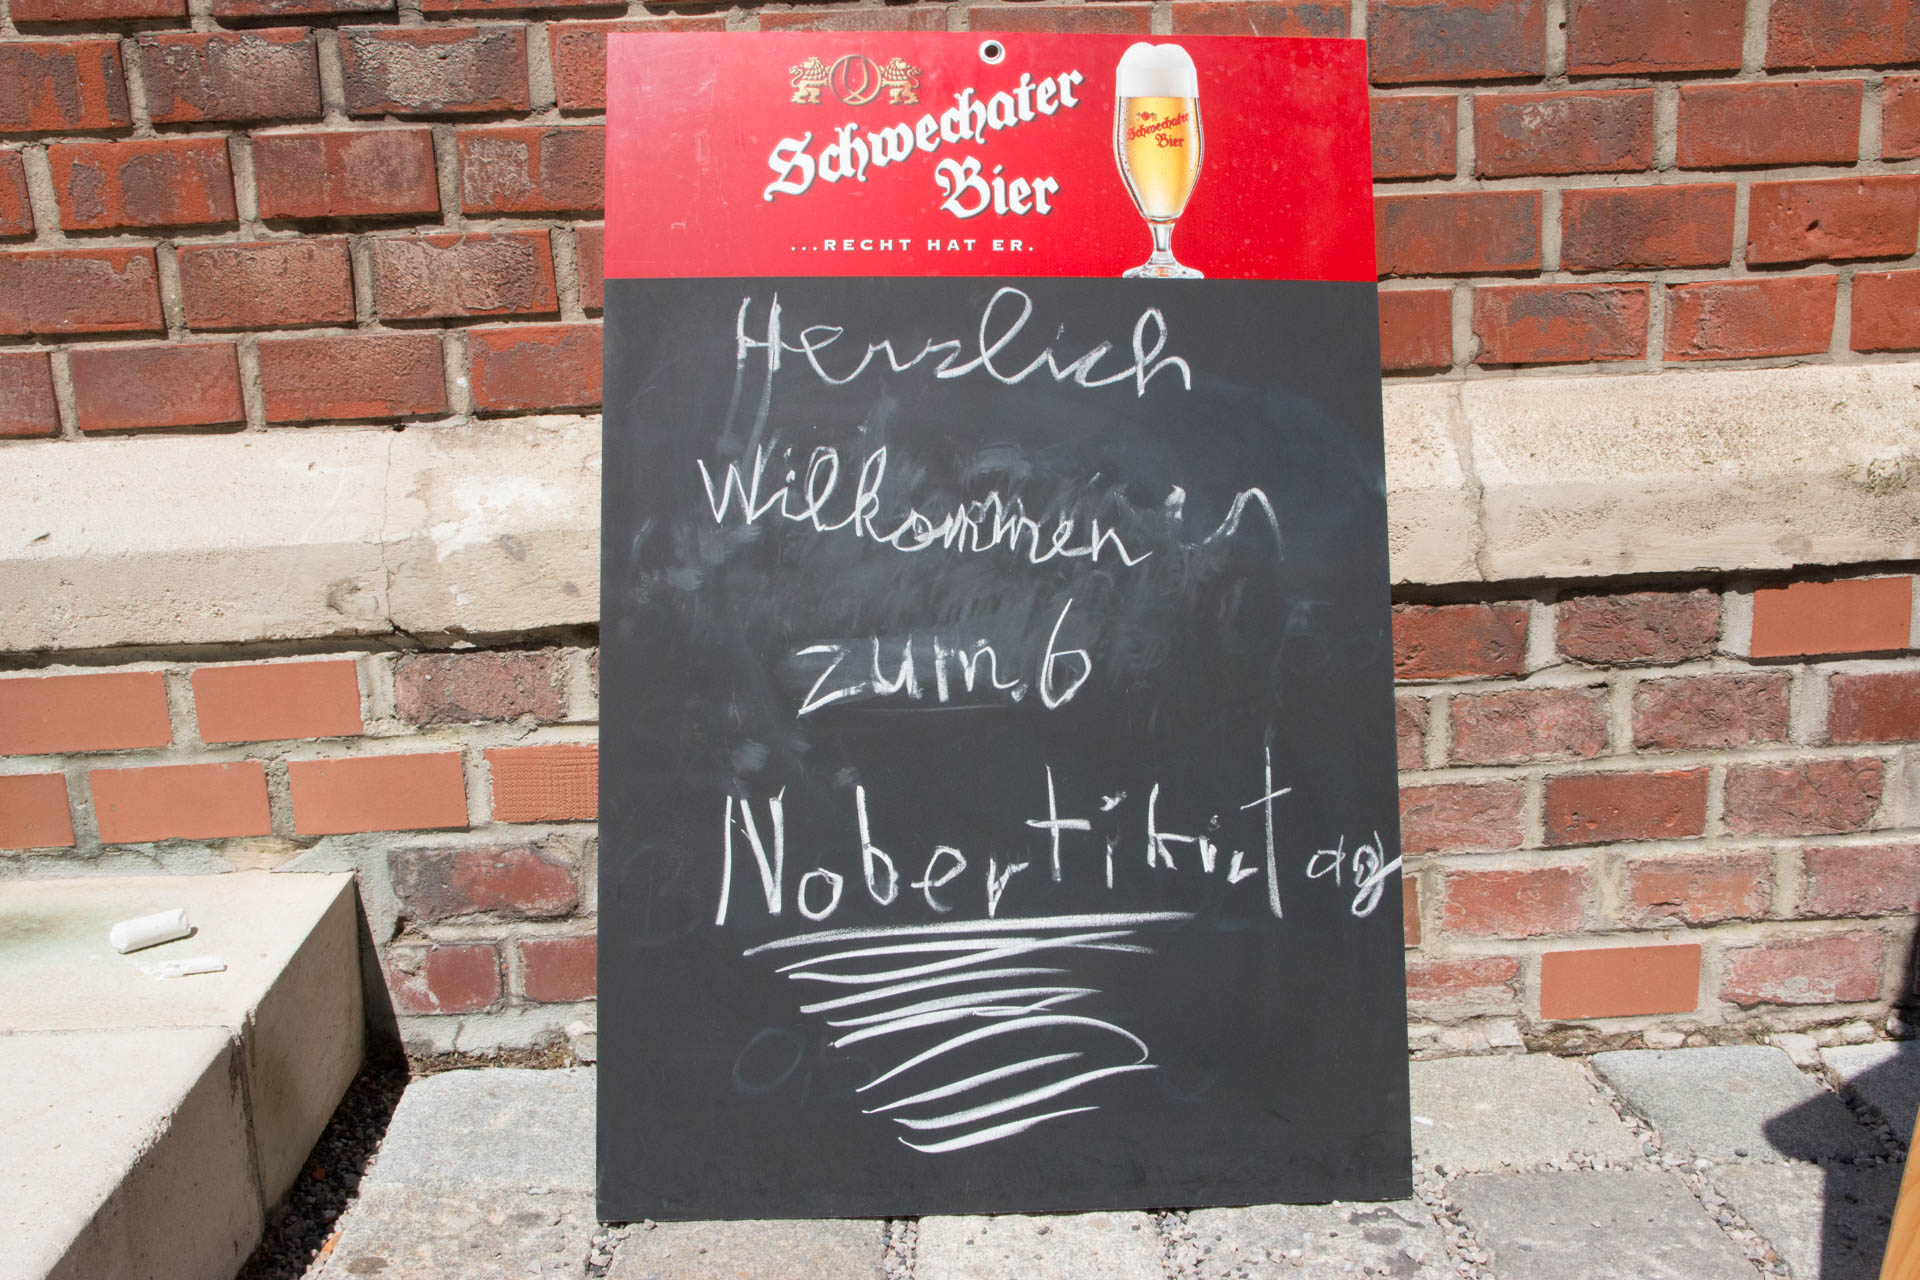 Schwechater
Bier
...RECHT HAT ER.
Schwechater
Bier
Herzlich
Wilkommen
zum 6
Nobertikirtag